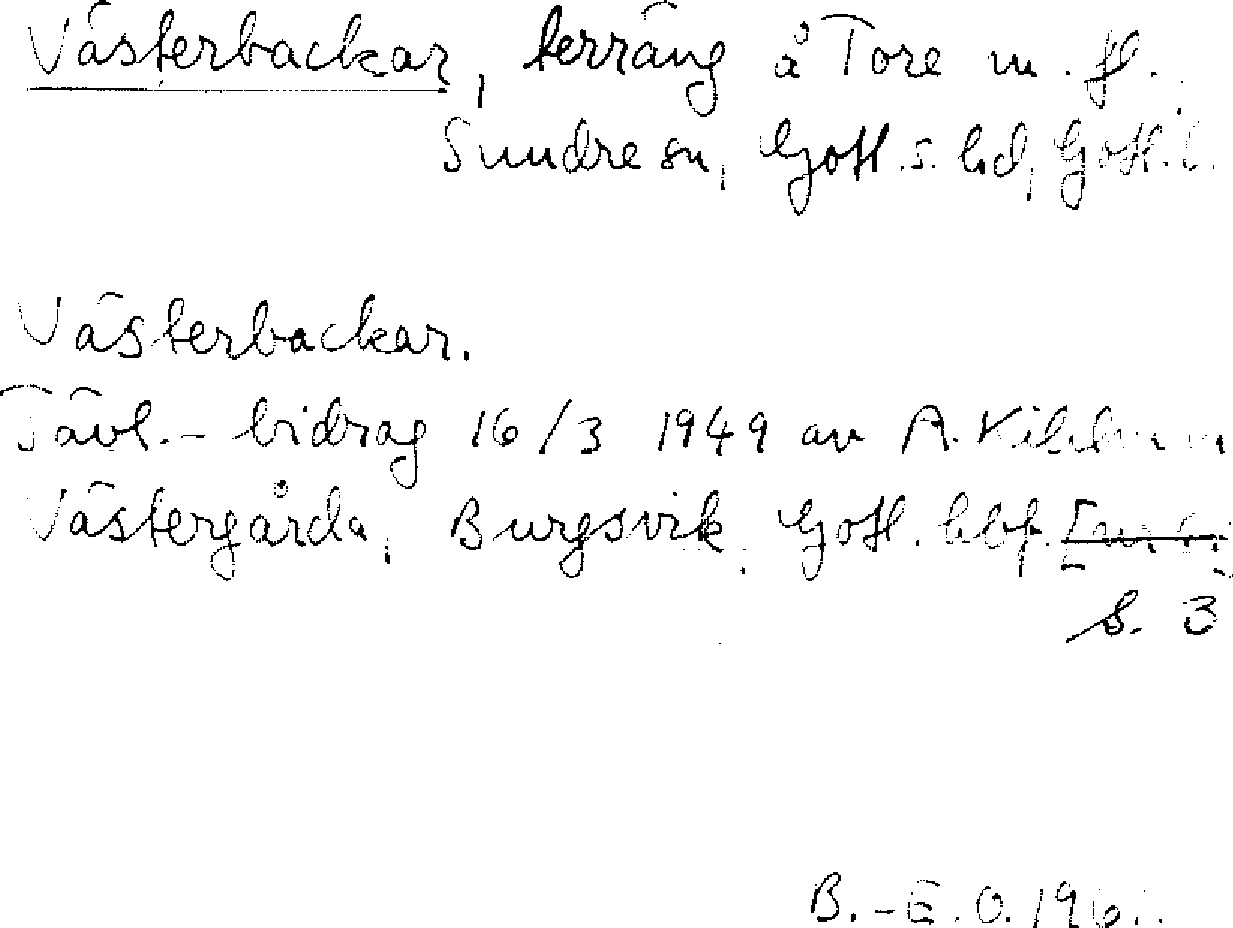 Västerbackar, terräng å Tore m. fl.,
Sundre sn, Gotl. s. hd, Gotl. l.
Västerbackar.
Tävl.- bidrag 16/3 1949 av A.
Västergårda, Burgsvik, Gotl.
s. 3
B.-E. O.